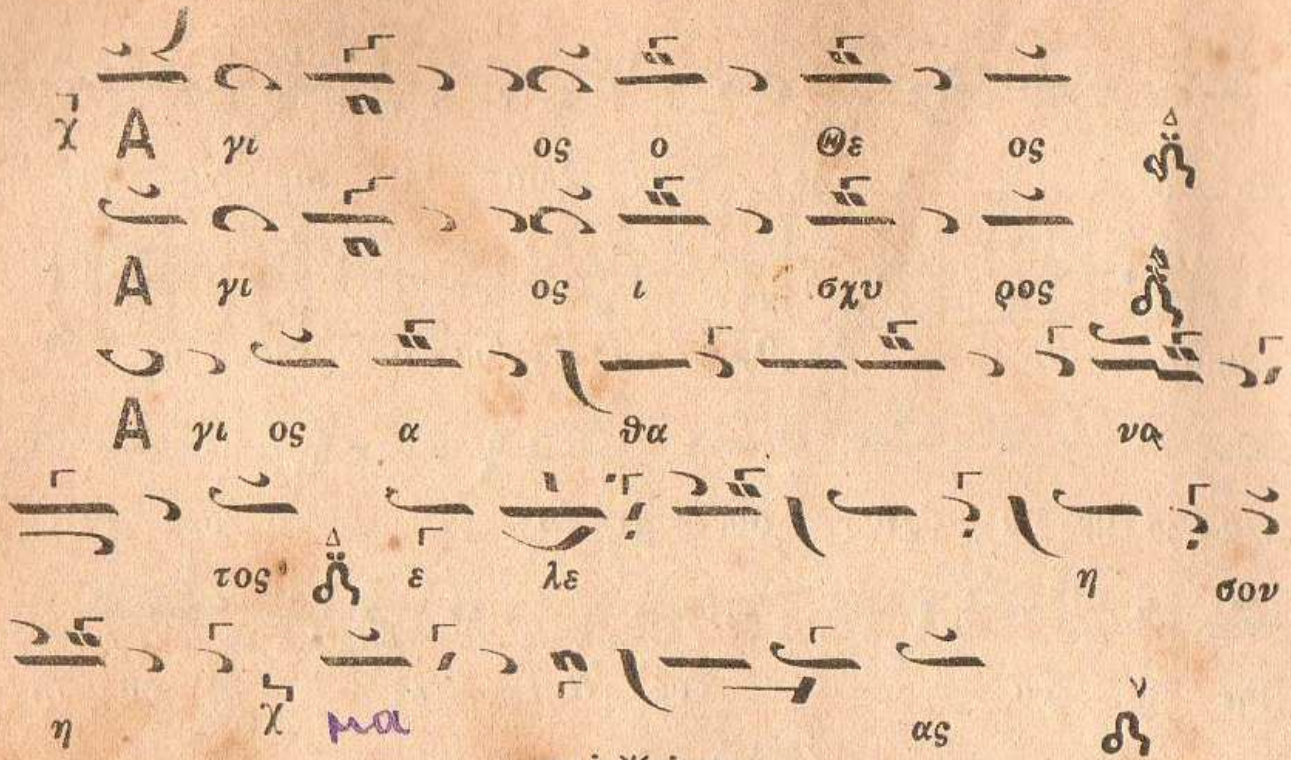 χ Α γι ος ο Θε ος
Α γι ος ι σχυ ρος
Α γι ος α θα να
τος ε λε η σον
η χ μα ας